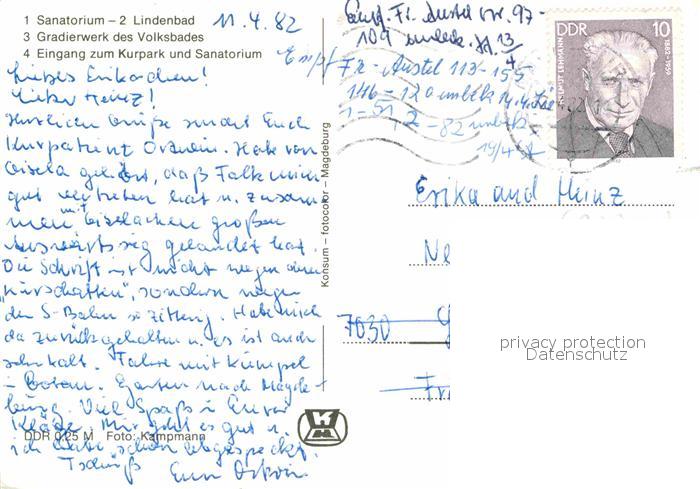 1 Sanatorium – 2 Lindenbad
3 Gradierwerk des Volksbades
4 Eingang zum Kurpark und Sanatorium
11.4.82
Liebes Erikachen!
Lieber Heinz!
Herzliche Grüße sendet Euch
Kurpatient Ortwin. Habe von
Gisela gehört, daß Falk mich
gut vertreten hat u. zusam
men mit Giselachen großen
Auswärtssieg gelandet hat.
Die Schrift ist nicht wegen dem
"Kurschatten", sondern wegen
der S-Bahn so zittrig. Habe mich
da zurückgehalten u. es ist auch
sehr kalt. Fahre mit Kumpel
Garten nach Magde-
burg. Viel Spaß i. Eurer
Mir geht es gut u.
ich habe schon abgespeckt.
Tschüß Euer Ortwin
DDR 0,25 M Foto: Kampmann
Konsum – fotocolor – Magdeburg
Empf. Fr. Austel vr. 97-
109 unbek. 13/4
Empf Fr. Austel 113-155
146-120 unbek 14.4.
82 unbek
19/4
DDR 10
HELMUT LEHMANN 1882-1959
Erika und Heinz
Ne
7030
Fr
privacy protection
Datenschutz